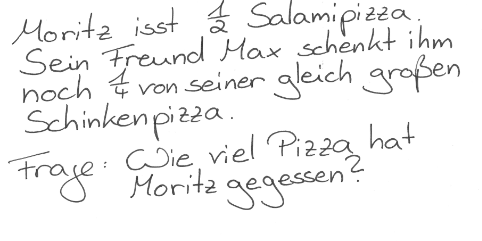 Moritz isst 1/2 Salamipizza.
Sein Freund Max schenkt ihm
noch 1/4 von seiner gleich großen
Schinkenpizza.
Frage: Wie viel Pizza hat
Moritz gegessen?